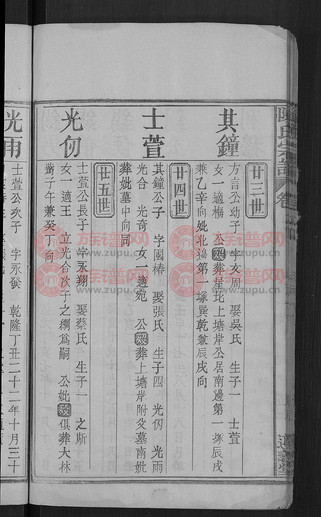 其鐘
廿三世
方言公幼子 字友周 娶吳氏 生子一 士萱
女一 適楊 公歿葬星北上塘岸公居南邊第一塚辰戌
兼乙辛向妣北邊第一塚巽乾兼辰戌向
士萱
廿四世
其鐘公子 字國椿 娶張氏 生子四 光仞 光雨
光合 光奇 女一 適宛 公歿葬上塘岸附父墓南妣
葬妣墓中向同
光仞
廿五世
士萱公長子 字永翔 娶蔡氏 生子一 之斯
女一 適王 立光合次子之綱爲嗣 公妣歿俱葬大林
子午兼癸丁向
光雨
士萱公次子 字永發 乾隆丁丑二十二年十月三十
族譜网
www.zupu.cn